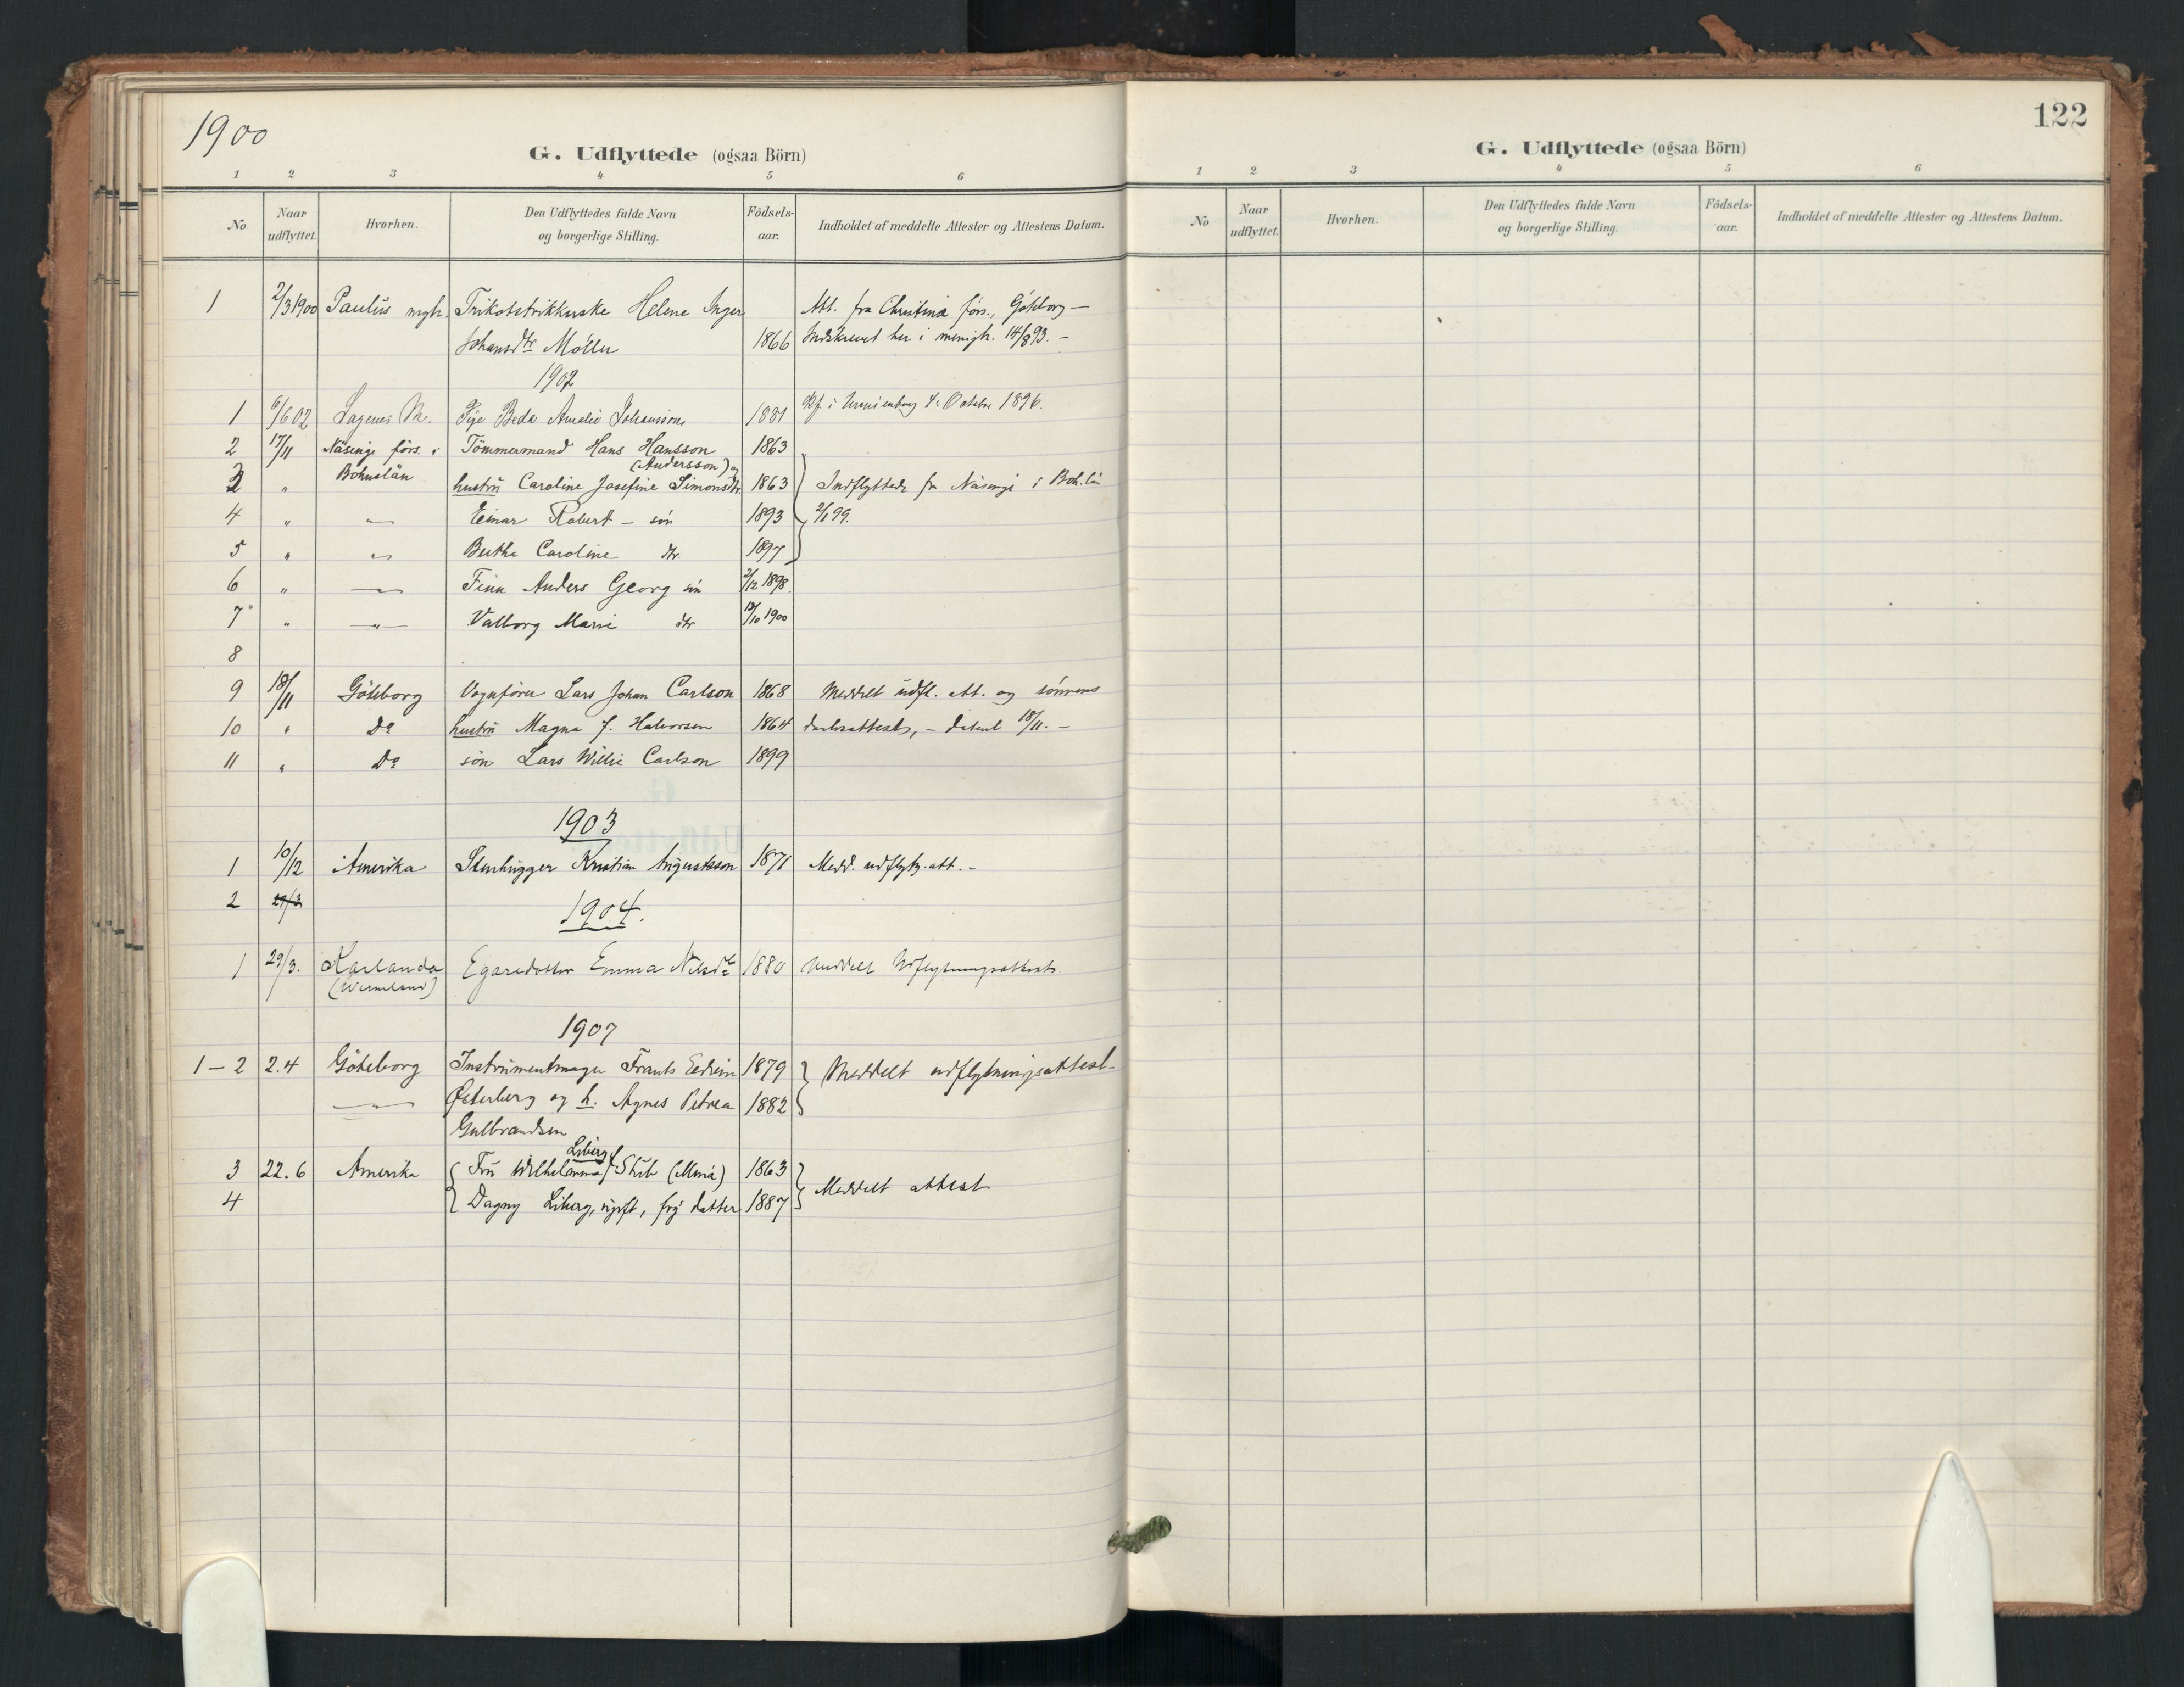 1900
G. Udflyttede (ogsaa Börn)
1 2 3 4 5 6
No Naar udflyttet. Hvorhen. Den Udflyttedes fulde Navn og borgerlige Stilling. Födsels-aar. Indholdet af meddelte Attester og Attestens Datum.
1 2/3 1900 Paulus mgh. Trikotstrikkerske Helene Inger Att. fra Christina förs., Göteborg —
Johansdtr Möller 1866 Indskrevet her i menigh. 14/8 93. —
1902
1 6/6 02 M. Pige Beda Amalie Johansson 1881 Kf. i Uranienborg 4. October 1896.
2 17/11 Näsinge förs. i Tömmermand Hans Hansson 1863
(Andersson) og
3 " Bohuslän hustru Caroline Josefine Simonsdtr 1863 Indflyttede fra Näsinge i Boh.län
4 " " Einar Robert – sön 1893 2/1 99.
5 " " Bertha Caroline dtr. 1897
6 " " Finn Anders Georg sön 2/12 1898.
7 " " Valborg Marie dtr /10 1900
8
9 18/11 Göteborg Vognförer Lars Johan Carlson 1868 Meddelt udfl. att. og sönnens
10 " Do hustru Magna J. Halvorsen 1864 daabsattest, – dateret 18/11. –
11 " Do sön Lars Willie Carlson 1899
1903
1 10/12 Amerika Stenhugger Kristian Augustsson 1871 Medd. udflytg. att. –
2 29/3
1904.
1 29/3. Karlanda Egaredotter Emma Nilsdtr 1880 Meddelt Udflytningsattest
(Wermland)
1907
1 – 2 2.4 Göteborg Instrumentmager Frants Edvin 1879 Meddelt udflytningsattest
" Østerberg og h. Agnes Petrea 1882
Gulbrandsen
Liberg
3 22.6 Amerika Fru Wilhelmina f. (Mina) 1863 Meddelt attest
4 Dagny Liberg, ugift, datter 1887
122
G. Udflyttede (ogsaa Börn)
1 2 3 4 5 6
No Naar udflyttet. Hvorhen. Den Udflyttedes fulde Navn og borgerlige Stilling. Födsels-aar. Indholdet af meddelte Attester og Attestens Datum.